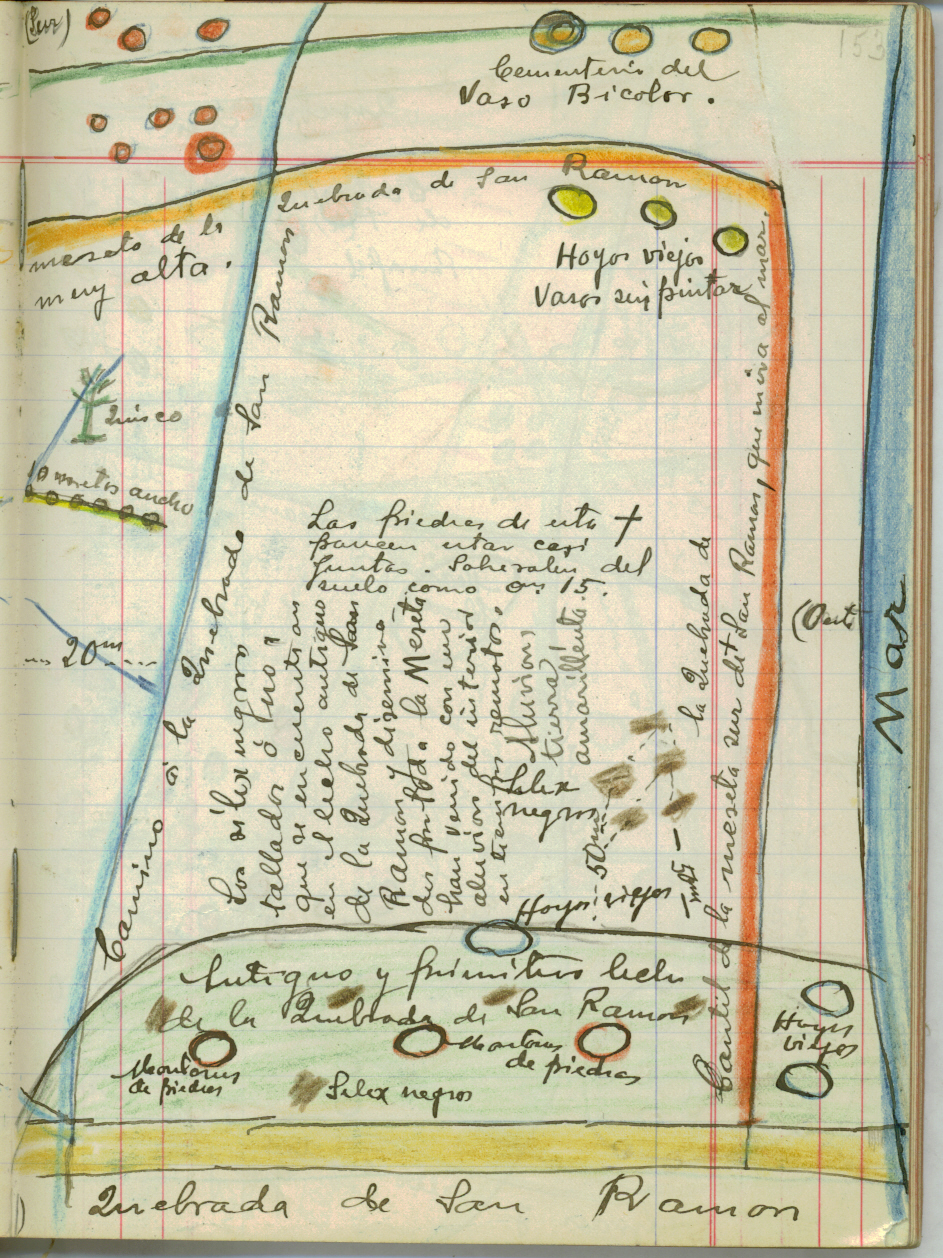 (Sur)
153
Cementerio del
Vaso Bicolor.
Quebrada de San Ramon
meseta de la
muy alta.
Hoyos viejos
Vasos sin pintar
Quisco
10 metros ancho
20 m
Camino á la Quebrada de San Ramon
Las piedras de esta +
parecen estar casi
juntas. Sobresalen del
suelo como 0m 15.
Los silex negros
tallados ó puo,
que se encuentran
en el lecho antiguo
de la Quebrada de San
Ramon y disemina-
dos por toda la Meseta
han venido con un
aluvion del interior
en tiempos remotos.
Aluvion,
tierra
amarillenta.
Silex
negros
50m
la Quebrada de
Cantil de la meseta sur de + San Ramon, que mira al mar.
(Oeste
Mar
Hoyos viejos
Antiguo y primitivo lecho
de la Quebrada de San Ramon
Montones
de piedras
Montones
de piedras
Silex negros
Hoyos
viejos
Quebrada de San Ramon